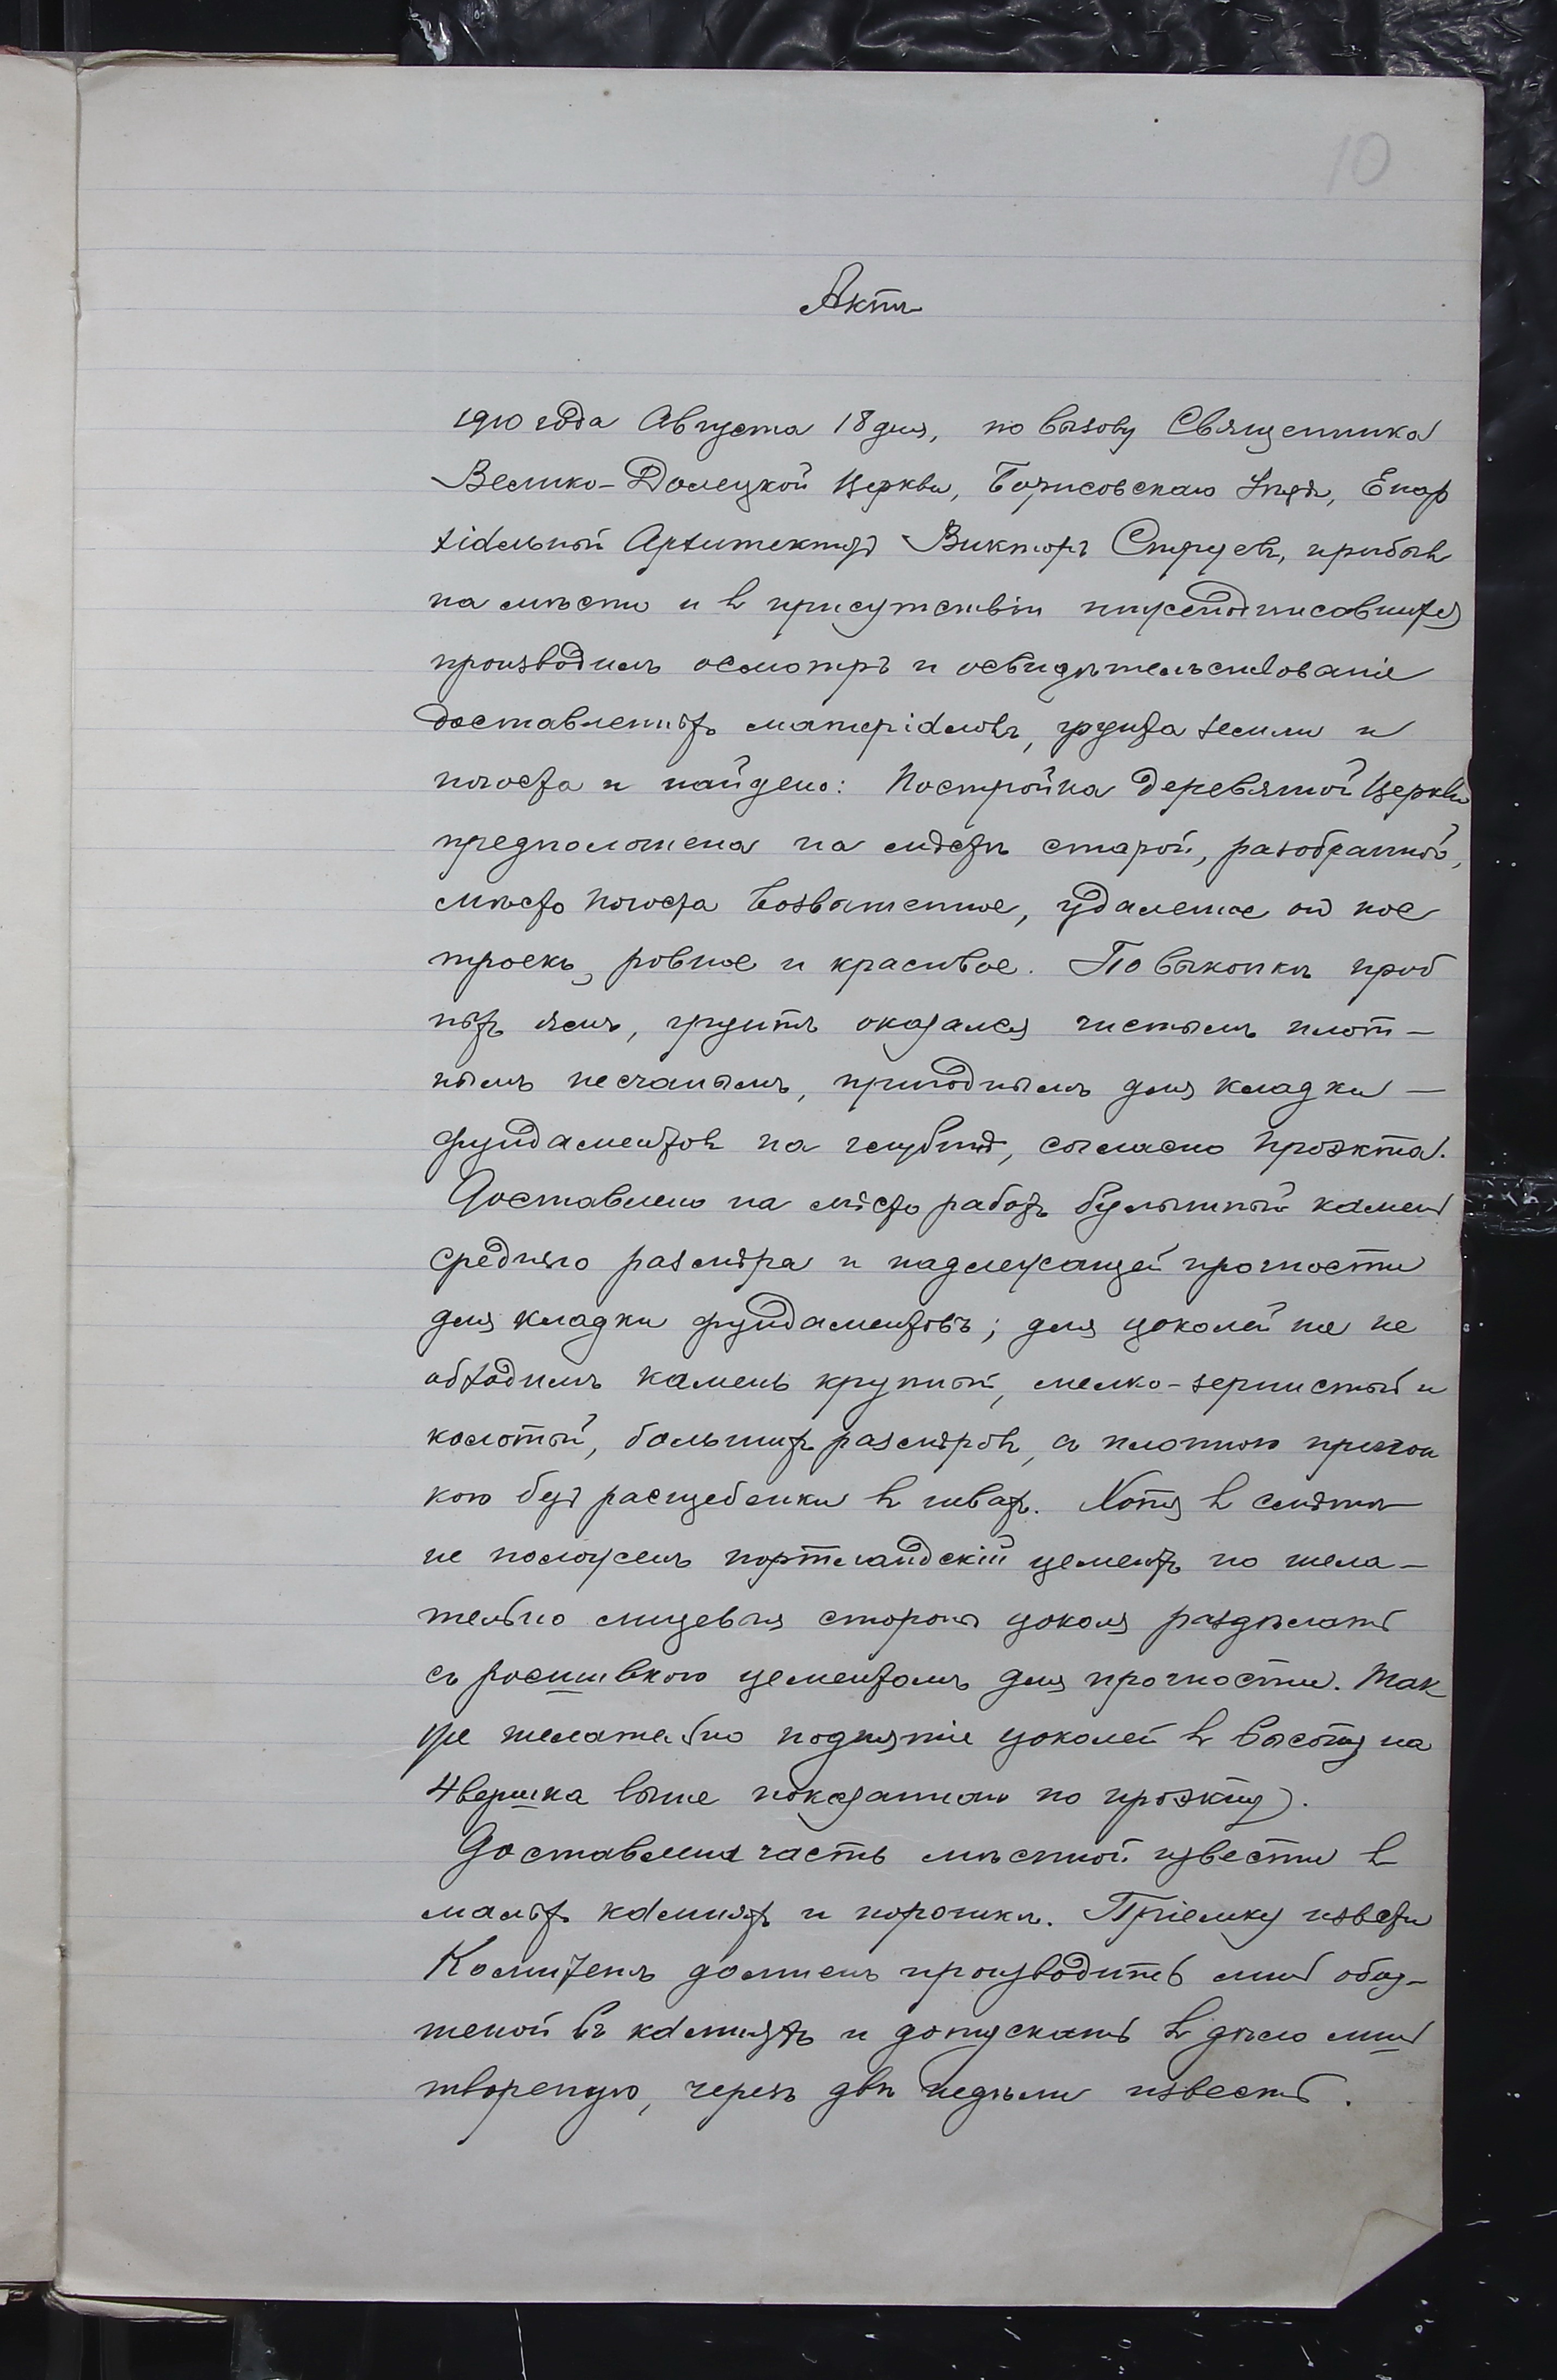 10
Актъ
1910 года Августа 18 дня, по вызову Священника
Велико-Долецкой Церкви, Борисовскаго Уѣзда, Епар
хіальный Архитекторъ Викторъ Струевъ, прибывъ
на мѣсто и въ присутствіи нижеподписавшихся
производилъ осмотръ и освидѣтельствованіе
доставленныхъ матеріаловъ, грунта земли и
погоста и найдено: Постройка деревянной Церкви
предположена на мѣстѣ старой, разобранной,
мѣсто погоста возвышенное, удаленное отъ пос
троекъ, ровное и красивое. По выкопкѣ проб
ныхъ ямъ, грунтъ оказался чистымъ плот-
нымъ песчанымъ, пригоднымъ для кладки —
фундаментовъ на глубинѣ, согласно проэкта.
Доставлено на мѣсто работъ булыжный камень
средняго размѣра и надлежащей прочности
для кладки фундаментовъ; для цоколей же не
обходимъ камень крупный, мелко-зернистый и
колотый, большихъ размѣровъ, съ плотною пригон
кою безъ расщебенки въ швахъ. Хотя въ смѣтѣ
не положенъ портландскій цементъ но жела-
тельно лицевыя стороны цоколя раздѣлать
съ росшивкою цементомъ для прочности. Так
же желательно поднятіе цоколей въ высоту на
4 вершка выше показаннаго по проэкту.
Доставлена часть мѣстной извести въ
малыхъ камняхъ и порошкѣ. Пріемку извести
Комитетъ долженъ производить лишь обож-
женой въ камняхъ и допускать въ дѣло лишь
твореную, черезъ двѣ недѣли известь.